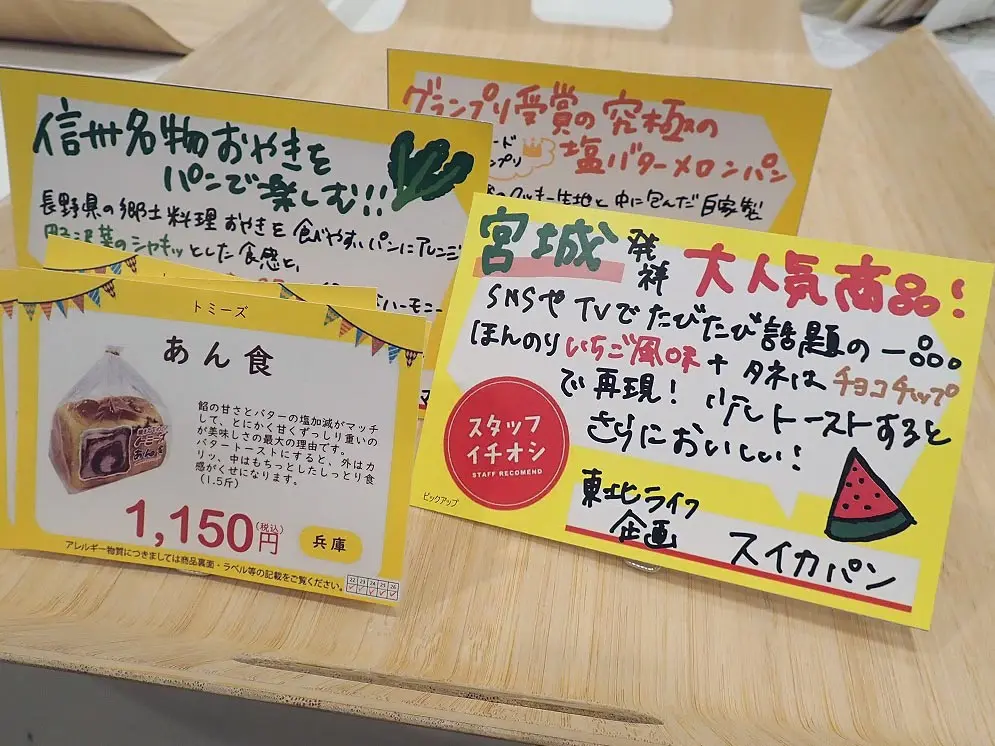 信州名物おやきを
パンで楽しむ!!
長野県の郷土料理おやきを食べやすいパンにアレンジ
野沢菜のシャキッとした食感と、
ハーモニー
グランプリ受賞の究極の
塩バターメロンパン
クッキー生地と中に包んだ自家製
トミーズ
あん食
餡の甘さとバターの塩加減がマッチ
して、とにかく甘くずっしり重いの
が美味しさの最大の理由です。
バタートーストにすると、外はカ
リッ、中はもちっとしたしっとり食
感がくせになります。
(1.5斤)
1,150円
(税込)
兵庫
アレルギー物質につきましては商品裏面・ラベル等の記載をご覧ください。
22 23 24 25 26
宮城発祥 大人気商品!
SNSやTVでたびたび話題の一品。
ほんのりいちご風味+タネはチョコチップ
で再現! 少しトーストすると
さらにおいしい!
スタッフ
イチオシ
STAFF RECOMEND
ピックアップ
東北ライフ
企画
スイカパン